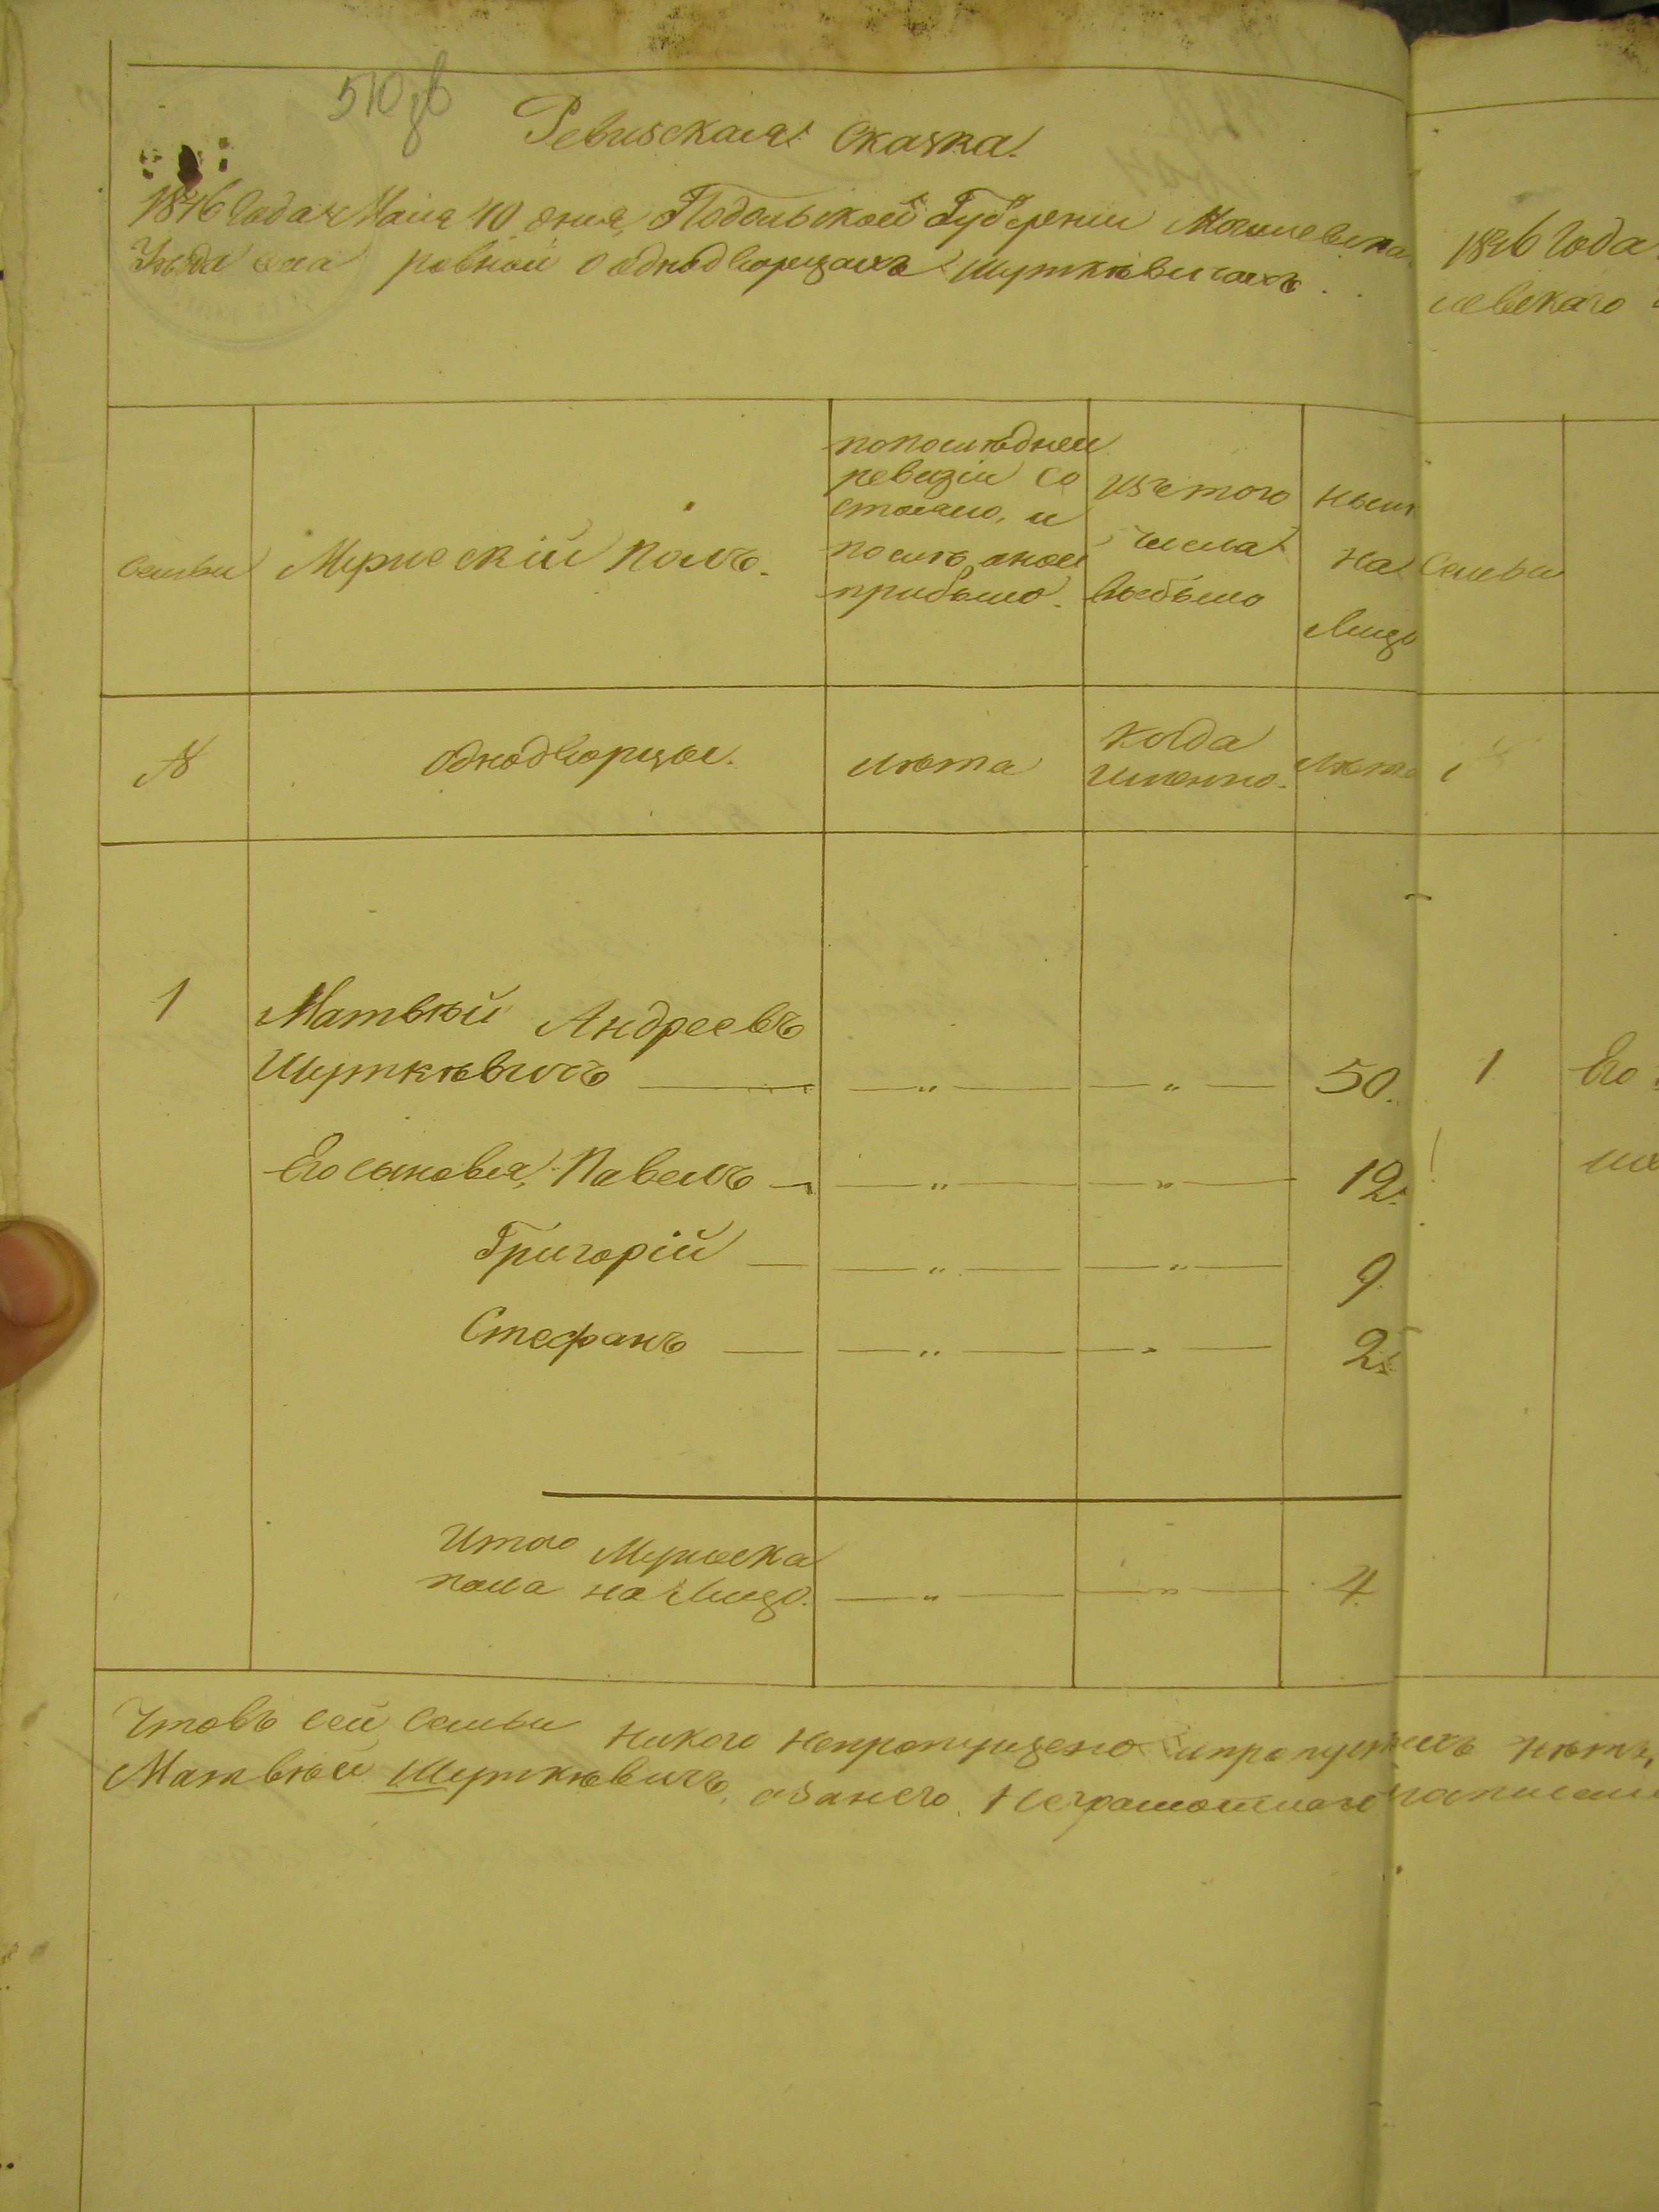 510 зв
Ревизская Сказка
1846 Года Мая 10 дня, Подольской Губернии Могилевска
Уезда села ровной о однодворцахъ Шуткѣвичахъ
Семьи
Мужескій полъ.
по последней
ревизіи со
стояло, и
послѣ оной
прибыло.
Изъ того
числа
выбыло
Нынѣ
на
Лицо
№
однодворцы.
лѣта
Когда
Именно.
Лѣта
1
Матвѣй Андреевъ
Шуткѣвичъ — „ — — „ — 50.
Его сыновья, Павелъ — „ — — „ — 12.
Григорій — „ — — „ — 9
Стефанъ — „ — — „ — 2
Итого Мужеска
пола на Лицо. — „ — — „ — 4.
Что въ сей семьи никого непропущено и пропускныхъ нѣтъ,
Матвѣй Шуткѣвичъ, а за него Неграмотного
1846 Года
левскаго
Семьи
1
Его